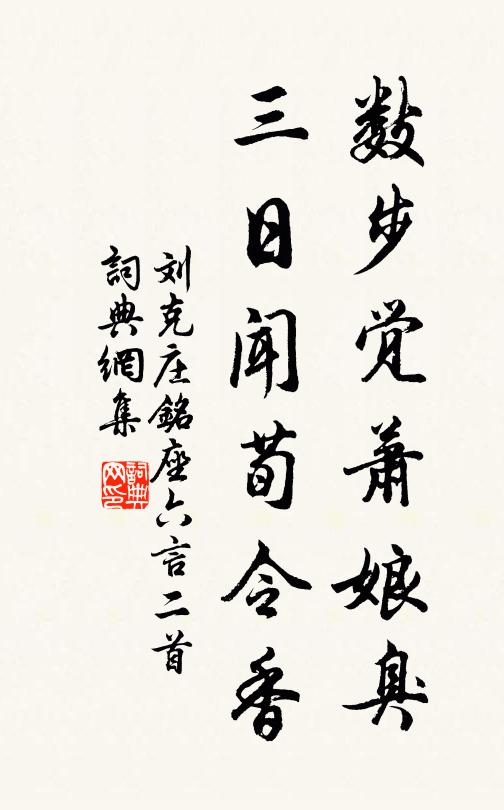 数步觉萧娘臭
三日闻荀令香
刘克庄铭座六言二首
詞典網集
詞典网印